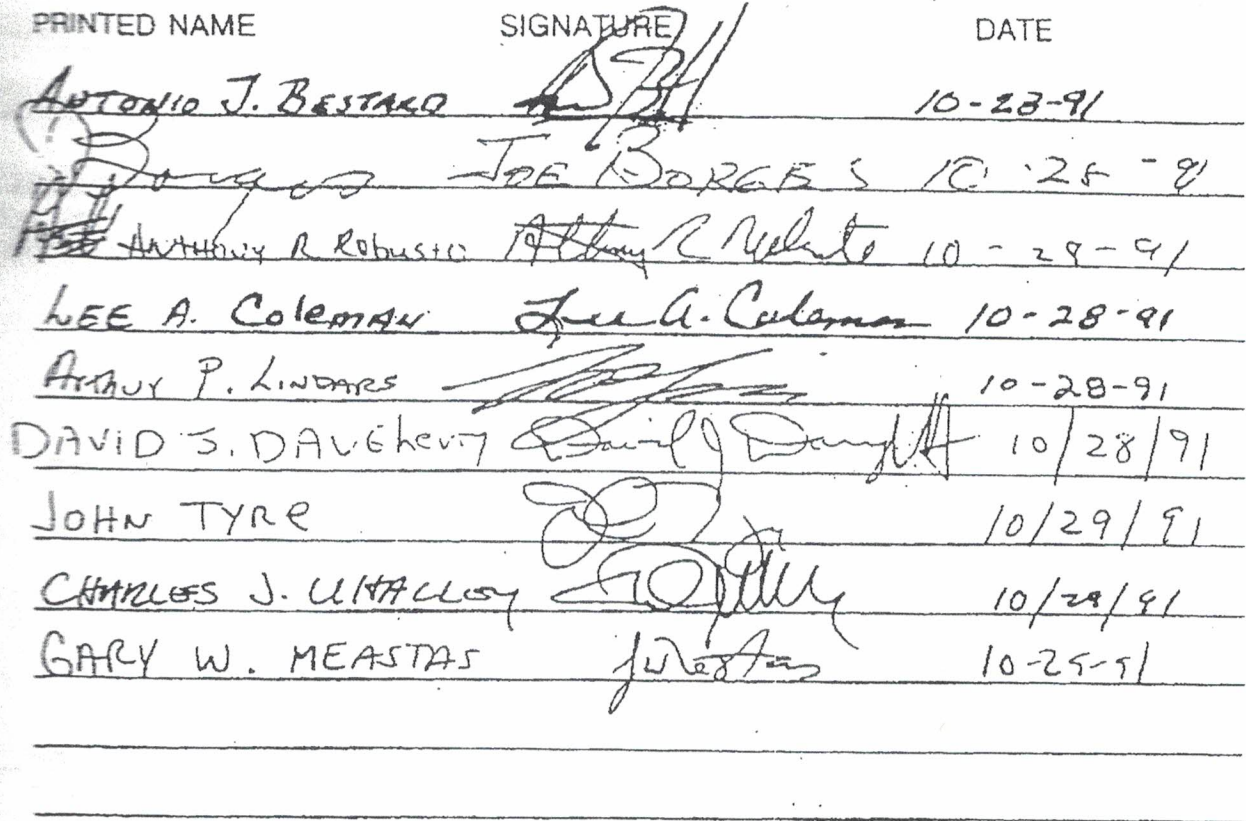 PRINTED NAME SIGNATURE DATE
ANTONIO J. BESTARD 10-28-91
Borges JOE BORGES 10-28-91
ANTHONY R ROBUSTO 10-28-91
LEE A. COLEMAN Lee A. Coleman 10-28-91
ARTHUR P. LINDARS 10-28-91
DAVID J. DAUGherty David J 10/28/91
JOHN TYRe 10/29/91
CHARLES J. UHALLEY 10/29/91
GARY W. MEASTAS 10-29-91